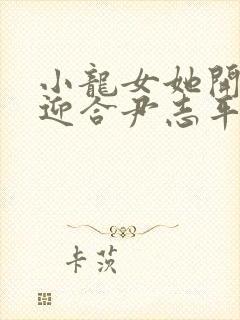 小龍女她開
迎合尹志平
卡茨